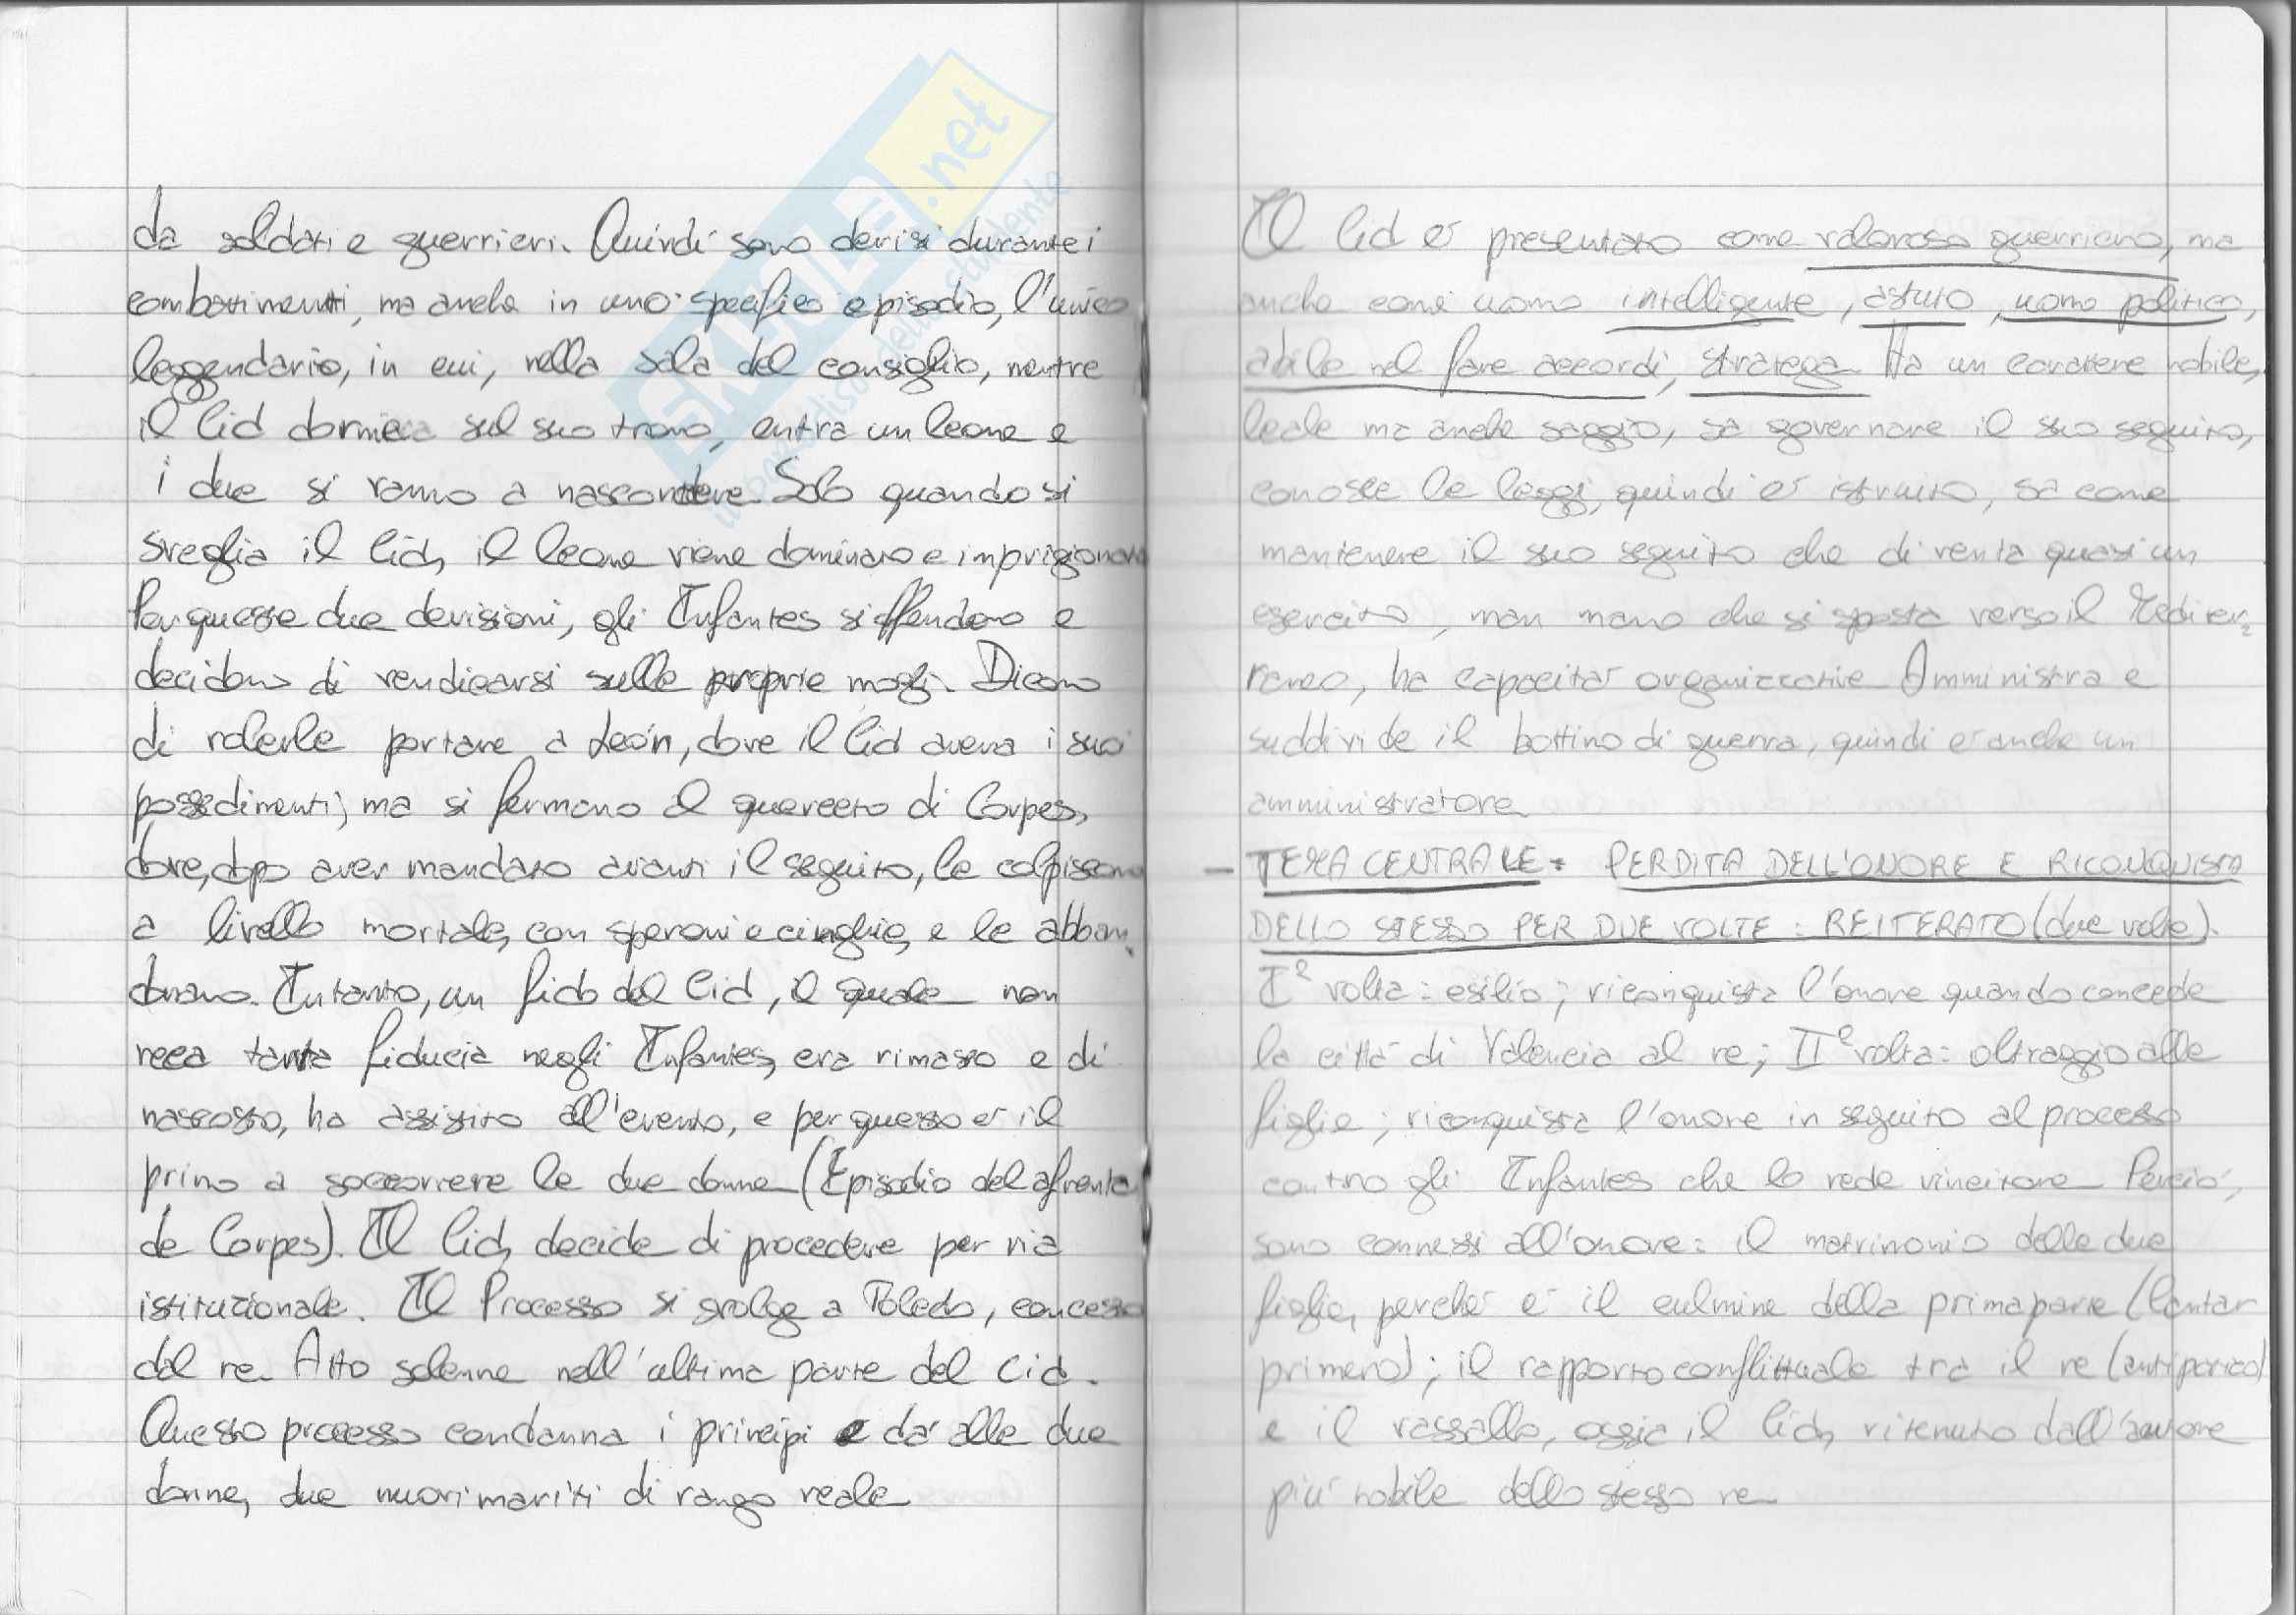 da soldati e guerrieri. Quindi sono derisi durante i
combattimenti, ma anche in uno specifico episodio, l'unico
leggendario, in cui, nella sala del consiglio, mentre
il Cid dormiva sul suo trono, entra un leone e
i due si vanno a nascondere. Solo quando si
sveglia il Cid, il leone viene dominato e imprigionato
Per queste due derisioni, gli Infantes si offendono e
decidono di vendicarsi sulle proprie mogli. Dicono
di volerle portare a León, dove il Cid aveva i suoi
possedimenti, ma si fermano al querceto di Corpes,
dove, dopo aver mandato avanti il seguito, le colpiscono
a livello mortale, con speroni e cinghie, e le abban
donano. Intanto, un fido del Cid, il quale non
tanta fiducia negli Infantes, era rimasto e di
nascosto, ha assistito all'evento, e per questo è il
primo a soccorrere le due donne (Episodio del afrenta
de Corpes). Il Cid, decide di procedere per via
istituzionale. Il Processo si svolge a Toledo, concesso
dal re. Atto solenne nell'ultima parte del Cid.
Questo processo condanna i principi e dà alle due
donne, due nuovi mariti di rango reale
SKUOLA.net
il paradiso dello studente
Il Cid è presentato come valoroso guerriero, ma
anche come uomo intelligente, astuto, uomo politico,
abile nel fare accordi, stratega. Ha un carattere nobile,
leale ma anche saggio, sa governare il suo seguito,
conosce le leggi, quindi è istruito, sa come
mantenere il suo seguito che diventa quasi un
esercito, man mano che si sposta verso il Mediter
raneo, ha capacità organizzative. Amministra e
suddivide il bottino di guerra, quindi è anche un
amministratore
- TEMA CENTRALE: PERDITA DELL'ONORE E RICONQUISTA
DELLO STESSO PER DUE VOLTE: REITERATO (due volte).
Iª volta: esilio; riconquista l'onore quando concede
la città di Valencia al re; IIª volta: oltraggio alle
figlie; riconquista l'onore in seguito al processo
contro gli Infantes che lo vede vincitore. Perciò,
sono connessi all'onore: il matrimonio delle due
figlie, perché è il culmine della prima parte (Cantar
primero); il rapporto conflittuale tra il re (antiporico)
e il vassallo, ossia il Cid, ritenuto dall'autore
più nobile dello stesso re